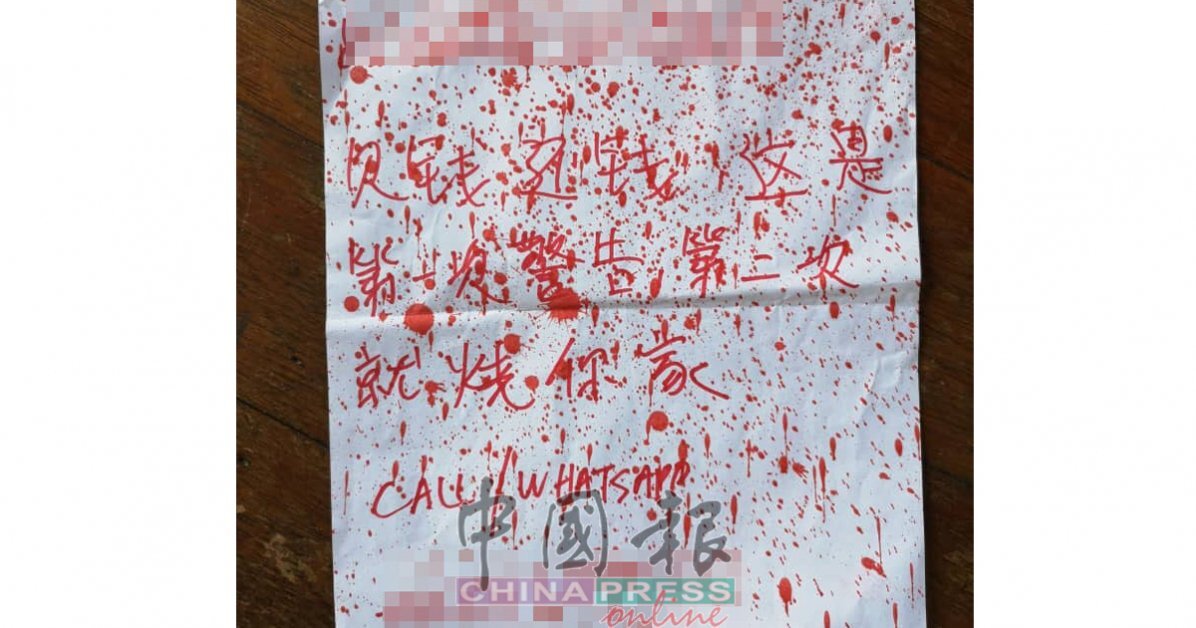 欠钱还钱,这是
第一次警告,第二次
就烧你家
CALL/WHATSAPP
中國報
CHINA PRESS
online